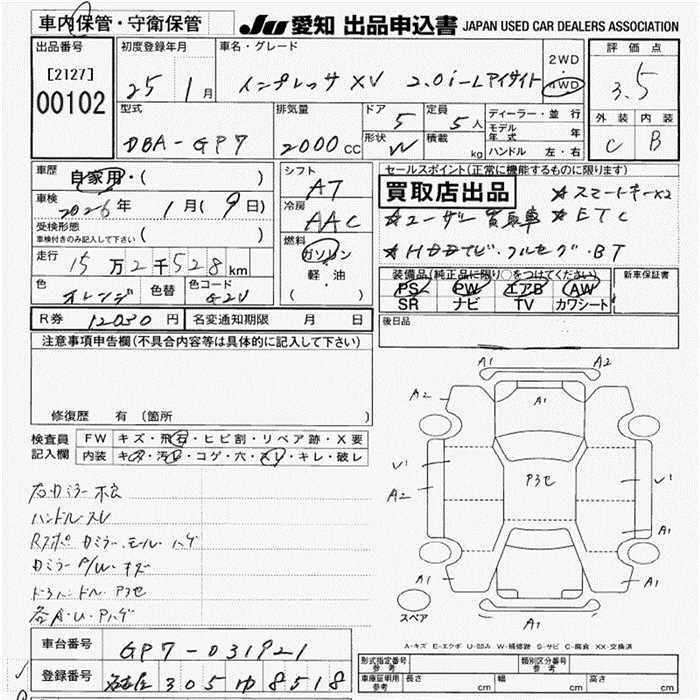 車内保管・守衛保管
JU 愛知 出品申込書 JAPAN USED CAR DEALERS ASSOCIATION
出品番号 [2127] 00102
初度登録年月 25 1月
車名・グレード インプレッサ XV 2.0i-Lアイサイト
2WD ・ 4WD
評価点 3.5
外装 内装
C B
型式 DBA-GP7
排気量 2000 CC
ドア 5
定員 5人
形状 W
積載 kg
ディーラー・並行
モデル年式 年
ハンドル 左・右
車歴 自家用・( )
車検 2026年 1月(9日)
受検形態 車検付きのみ記入して下さい ( )
走行 15万2千528km
色 オレンジ 色替 色コード G2U
シフト AT
冷房 AAC
燃料 ガソリン
軽・油
( )
セールスポイント(正常に機能するものに限ります)
買取店出品 ★スマートキーx2
★ユーザー買取車 ★ETC
★HDDナビ・フルセグ・BT
装備品(純正品に限り○をつけてください)
PS PW エアB AW
SR ナビ TV カワシート
新車保証書
後日品
R券 12030円 名変通知期限 月 日
注意事項申告欄(不具合内容等は具体的に記入して下さい)
修復歴 有 (箇所 )
検査員記入欄
FW キズ・飛石・ヒビ割・リペア跡・X要
内装 キズ・汚レ・コゲ・穴・スレ・キレ・破レ
右カミラー 不良
ハンドルスレ
カミラー P/W キズ
ドアハンドル P3セ
各A・U・Pハゲ
A1 A2
A2 A1
U1
A2
P3セ
U1
A1
A1 A1
A1 A1
スペア
A-キズ E-エクボ U-凹み W-補修跡 S-サビ C-腐食 XX-交換済
車台番号 GP7-031921
登録番号 名古屋 305 ゆ 8518
型式指定番号 参考
類別区分番号 参考
車庫証明用 参考 長さ cm 幅 cm 高さ cm